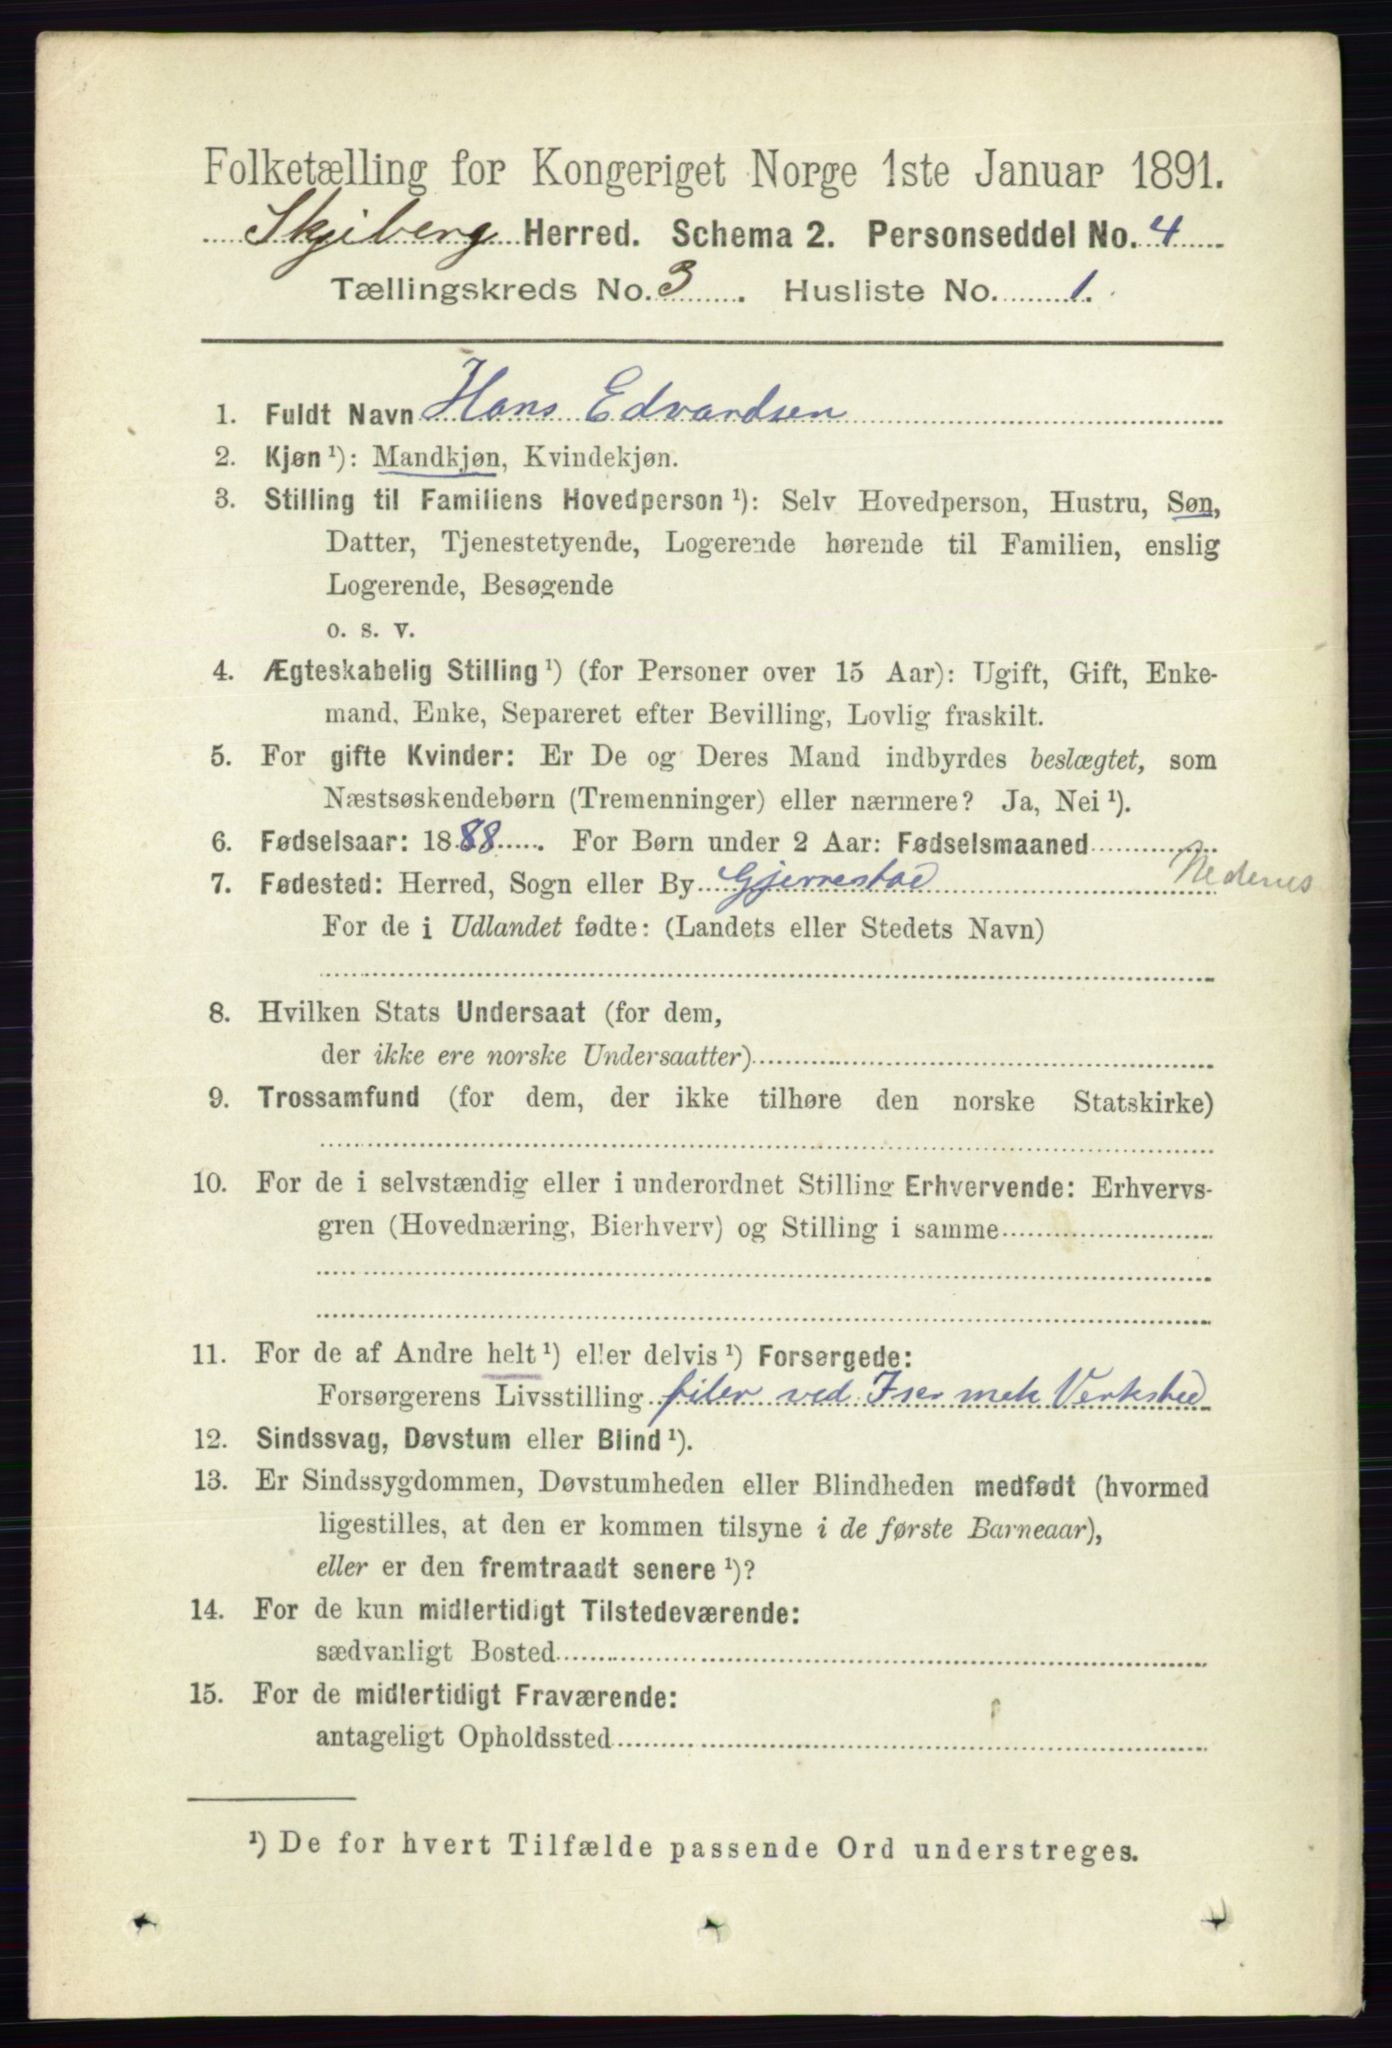 Folketælling for Kongeriget Norge 1ste Januar 1891.
Skjeberg Herred. Schema 2. Personseddel No. 4
Tællingskreds No. 3. Husliste No. 1.
1. Fuldt Navn Hans Edvardsen
2. Kjøn ¹): Mandkjøn, Kvindekjøn.
3. Stilling til Familiens Hovedperson ¹): Selv Hovedperson, Hustru, Søn,
Datter, Tjenestetyende, Logerende hørende til Familien, enslig
Logerende, Besøgende
o. s. v.
4. Ægteskabelig Stilling ¹) (for Personer over 15 Aar): Ugift, Gift, Enke-
mand, Enke, Separeret efter Bevilling, Lovlig fraskilt.
5. For gifte Kvinder: Er De og Deres Mand indbyrdes beslægtet, som
Næstsøskendebørn (Tremenninger) eller nærmere? Ja, Nei ¹).
6. Fødselsaar: 1888. For Børn under 2 Aar: Fødselsmaaned
7. Fødested: Herred, Sogn eller By Gjerrestad Nedenes
For de i Udlandet fødte: (Landets eller Stedets Navn)
8. Hvilken Stats Undersaat (for dem,
der ikke ere norske Undersaatter)
9. Trossamfund (for dem, der ikke tilhøre den norske Statskirke)
10. For de i selvstændig eller i underordnet Stilling Erhvervende: Erhvervs-
gren (Hovednæring, Bierhverv) og Stilling i samme
11. For de af Andre helt ¹) eller delvis ¹) Forsørgede:
Forsørgerens Livsstilling filer ved Iser mek Verksted
12. Sindssvag, Døvstum eller Blind ¹).
13. Er Sindssygdommen, Døvstumheden eller Blindheden medfødt (hvormed
ligestilles, at den er kommen tilsyne i de første Barneaar),
eller er den fremtraadt senere ¹)?
14. For de kun midlertidigt Tilstedeværende:
sædvanligt Bosted
15. For de midlertidigt Fraværende:
antageligt Opholdssted
¹) De for hvert Tilfælde passende Ord understreges.